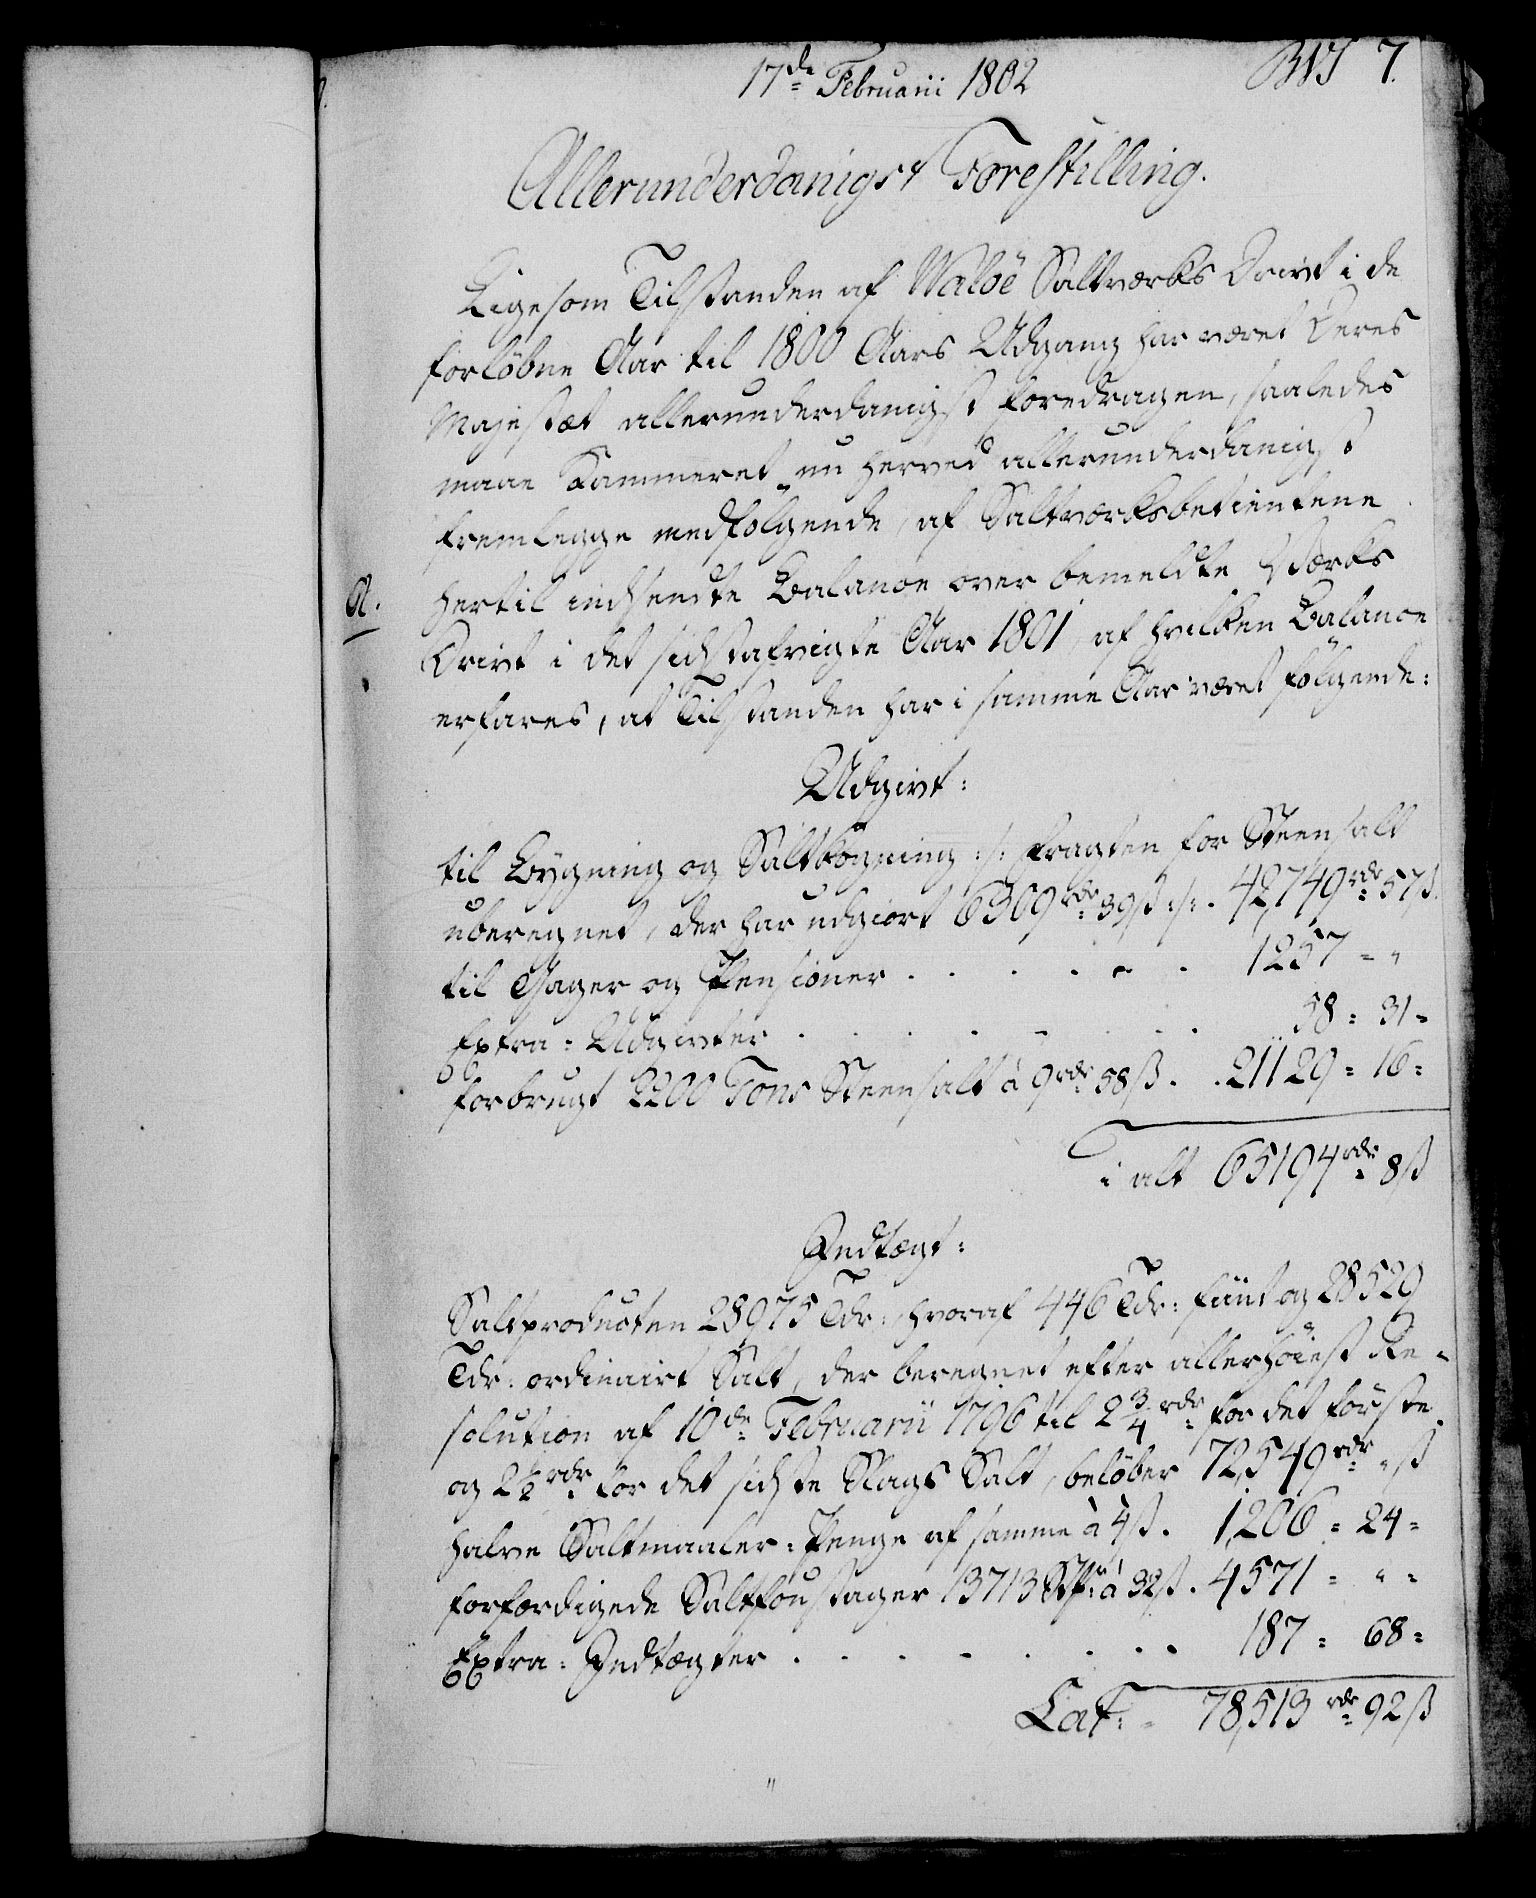 17de Februarii 1802
7.
Allerunderdanigst Forestilling.
Ligesom Tilstanden af Waløe Saltværks Drivt i de
forløbne Aar til 1800 Aars Udgang har været Deres
Majestæt allerunderdanigst foredragen, saaledes
maae Kammeret nu herved allerunderdanigst
fremlegge medfølgende, af Saltværksbetientene
A. hertil indsendte Balance over bemeldte Værks
Drivt i det sidstafvigte Aar 1801, af hvilken Balance
erfares, at Tilstanden har i samme Aar været følgende:
Udgivt:
til Bygning og Saltkogning :/: Fragten for Steensalt
uberegnet, der har udgiort 6309 rdr 39 ß :/: . 42,749 rdr 57 ß.
til Gager og Pensioner . . . . . . 1257 = "
Extra-Udgivter . . . . . . . 58 = 31 =
forbrugt 2200 Tons Steensalt à 9 rdr 58 ß . . 21129 = 16 =
i alt 65194 rdr 8 ß
Indtægt:
Saltproducten 28975 Tdr:, hvoraf 446 Tdr: fiint og 28529
Tdr: ordinairt Salt, der beregnet efter allerhøiest Re-
solution af 10de Februarii 1796 til 2 3/4 rdr for det første
og 2 1/2 rdr for det sidste Slags Salt, beløber 72,549 rdr " ß
halve Saltmaaler-Penge af samme à 4 ß . 1,206 = 24 =
forfærdigede Saltfoustager 13713 Stk: à 32 ß . 4571 = " =
Extra-Indtægter . . . . . . . . 187 = 68 =
Lat: 78,513 rdr 92 ß